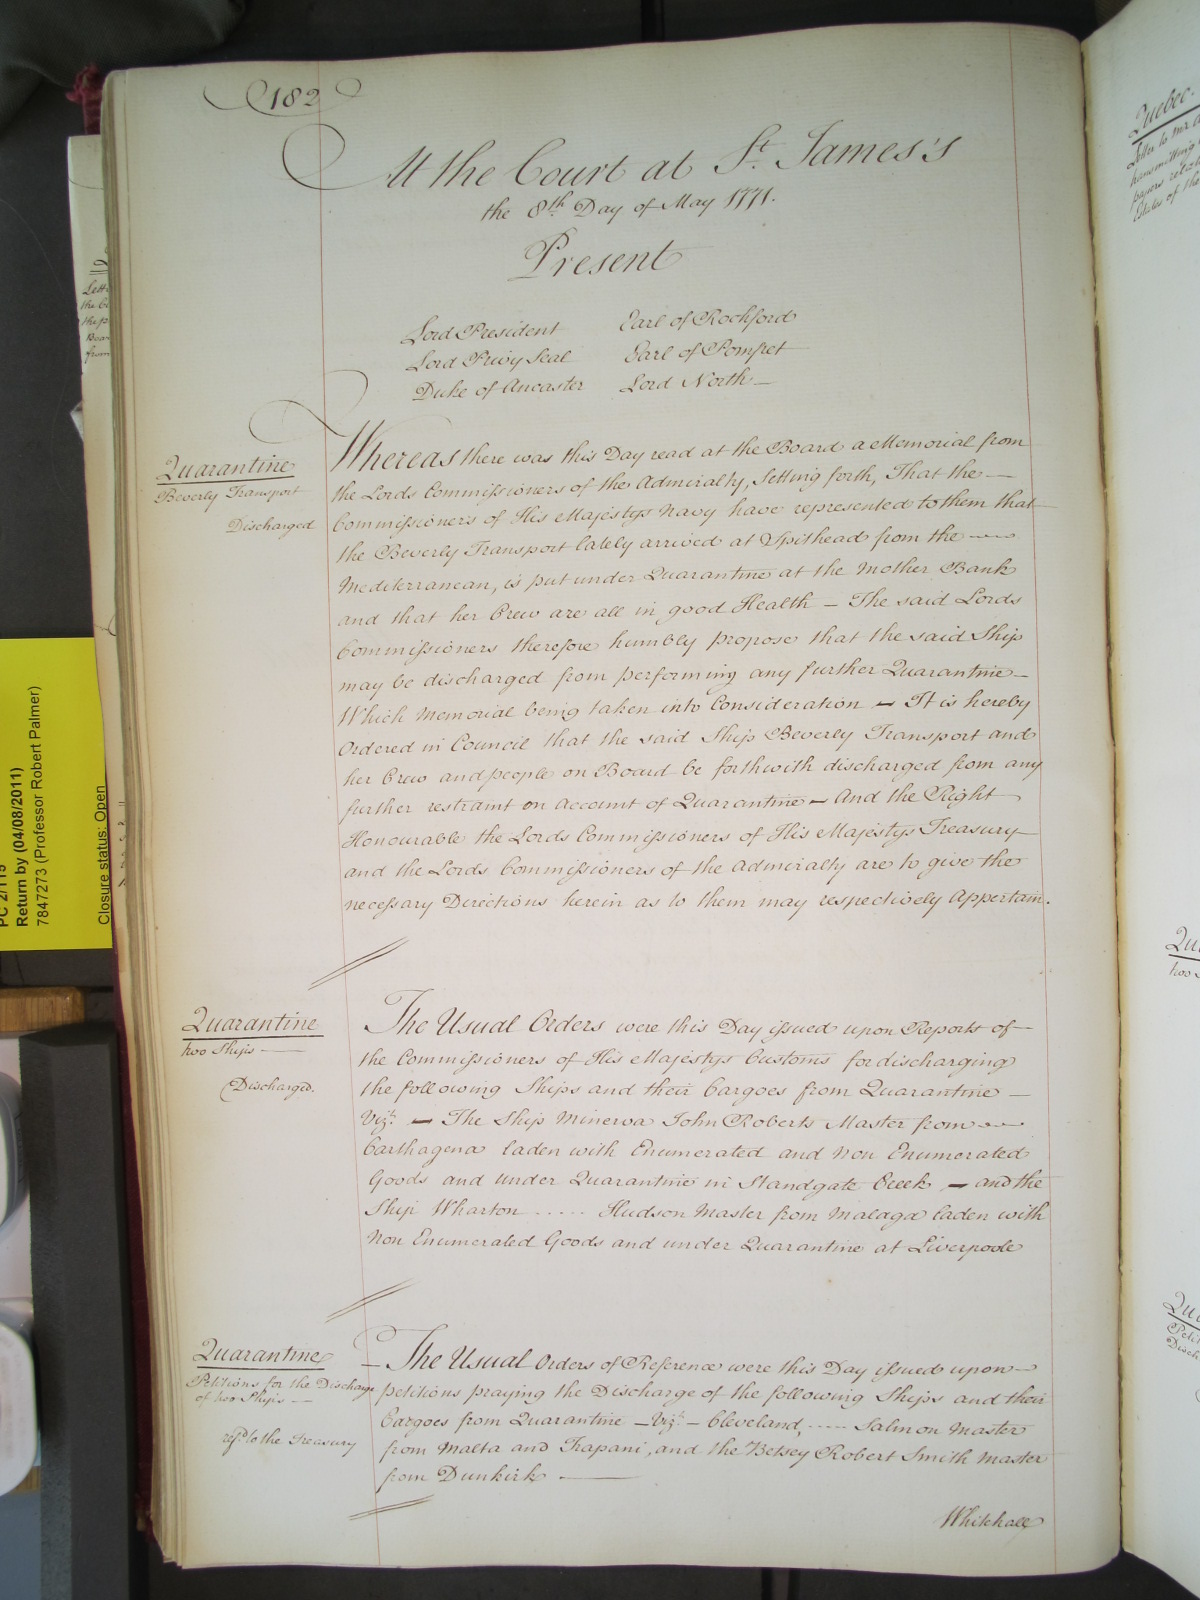 182
At the Court at St. James's
the 8th Day of May 1771.
Present
Lord President Earl of Rochford
Lord Privy Seal Earl of Pomfret
Duke of Ancaster Lord North
Quarantine
Beverly Transport
Discharged
Whereas there was this Day read at the Board a Memorial from
the Lords Commissioners of the Admiralty, Setting forth, That the
Commissioners of His Majestys Navy have represented to them that
the Beverly Transport lately arrived at Spithead from the
Mediterranean, is put under Quarantine at the Mother Bank
and that her Crew are all in good Health – The said Lords
Commissioners therefore humbly propose that the said Ship
may be discharged from performing any further Quarantine –
Which Memorial being taken into Consideration – It is hereby
Ordered in Council that the said Ship Beverly Transport and
her Crew and people on Board be forthwith discharged from any
further restraint on Account of Quarantine – And the Right
Honourable the Lords Commissioners of His Majestys Treasury
and the Lords Commissioners of the Admiralty are to give the
necessary Directions herein as to them may respectively Appertain.
Quarantine
two Ships
Discharged.
The Usual Orders were this Day issued upon Reports of
the Commissioners of His Majestys Customs for discharging
the following Ships and their Cargoes from Quarantine –
Vizt. – The Ship Minerva John Roberts Master from
Carthagena laden with Enumerated and Non Enumerated
Goods and under Quarantine in Standgate Creek – and the
Ship Wharton ..... Hudson Master from Malaga laden with
Non Enumerated Goods and under Quarantine at Liverpoole
Quarantine
Petitions for the Discharge
of two Ships
refd. to the Treasury
The Usual Orders of Reference were this Day issued upon
petitions praying the Discharge of the following Ships and their
Cargoes from Quarantine – Vizt. – Cleveland, ..... Salmon Master
from Malta and Trapani, and the Betsey Robert Smith Master
from Dunkirk
Whitehall
Return by (04/08/2011)
7847273 (Professor Robert Palmer)
Closure status: Open
Quebec.